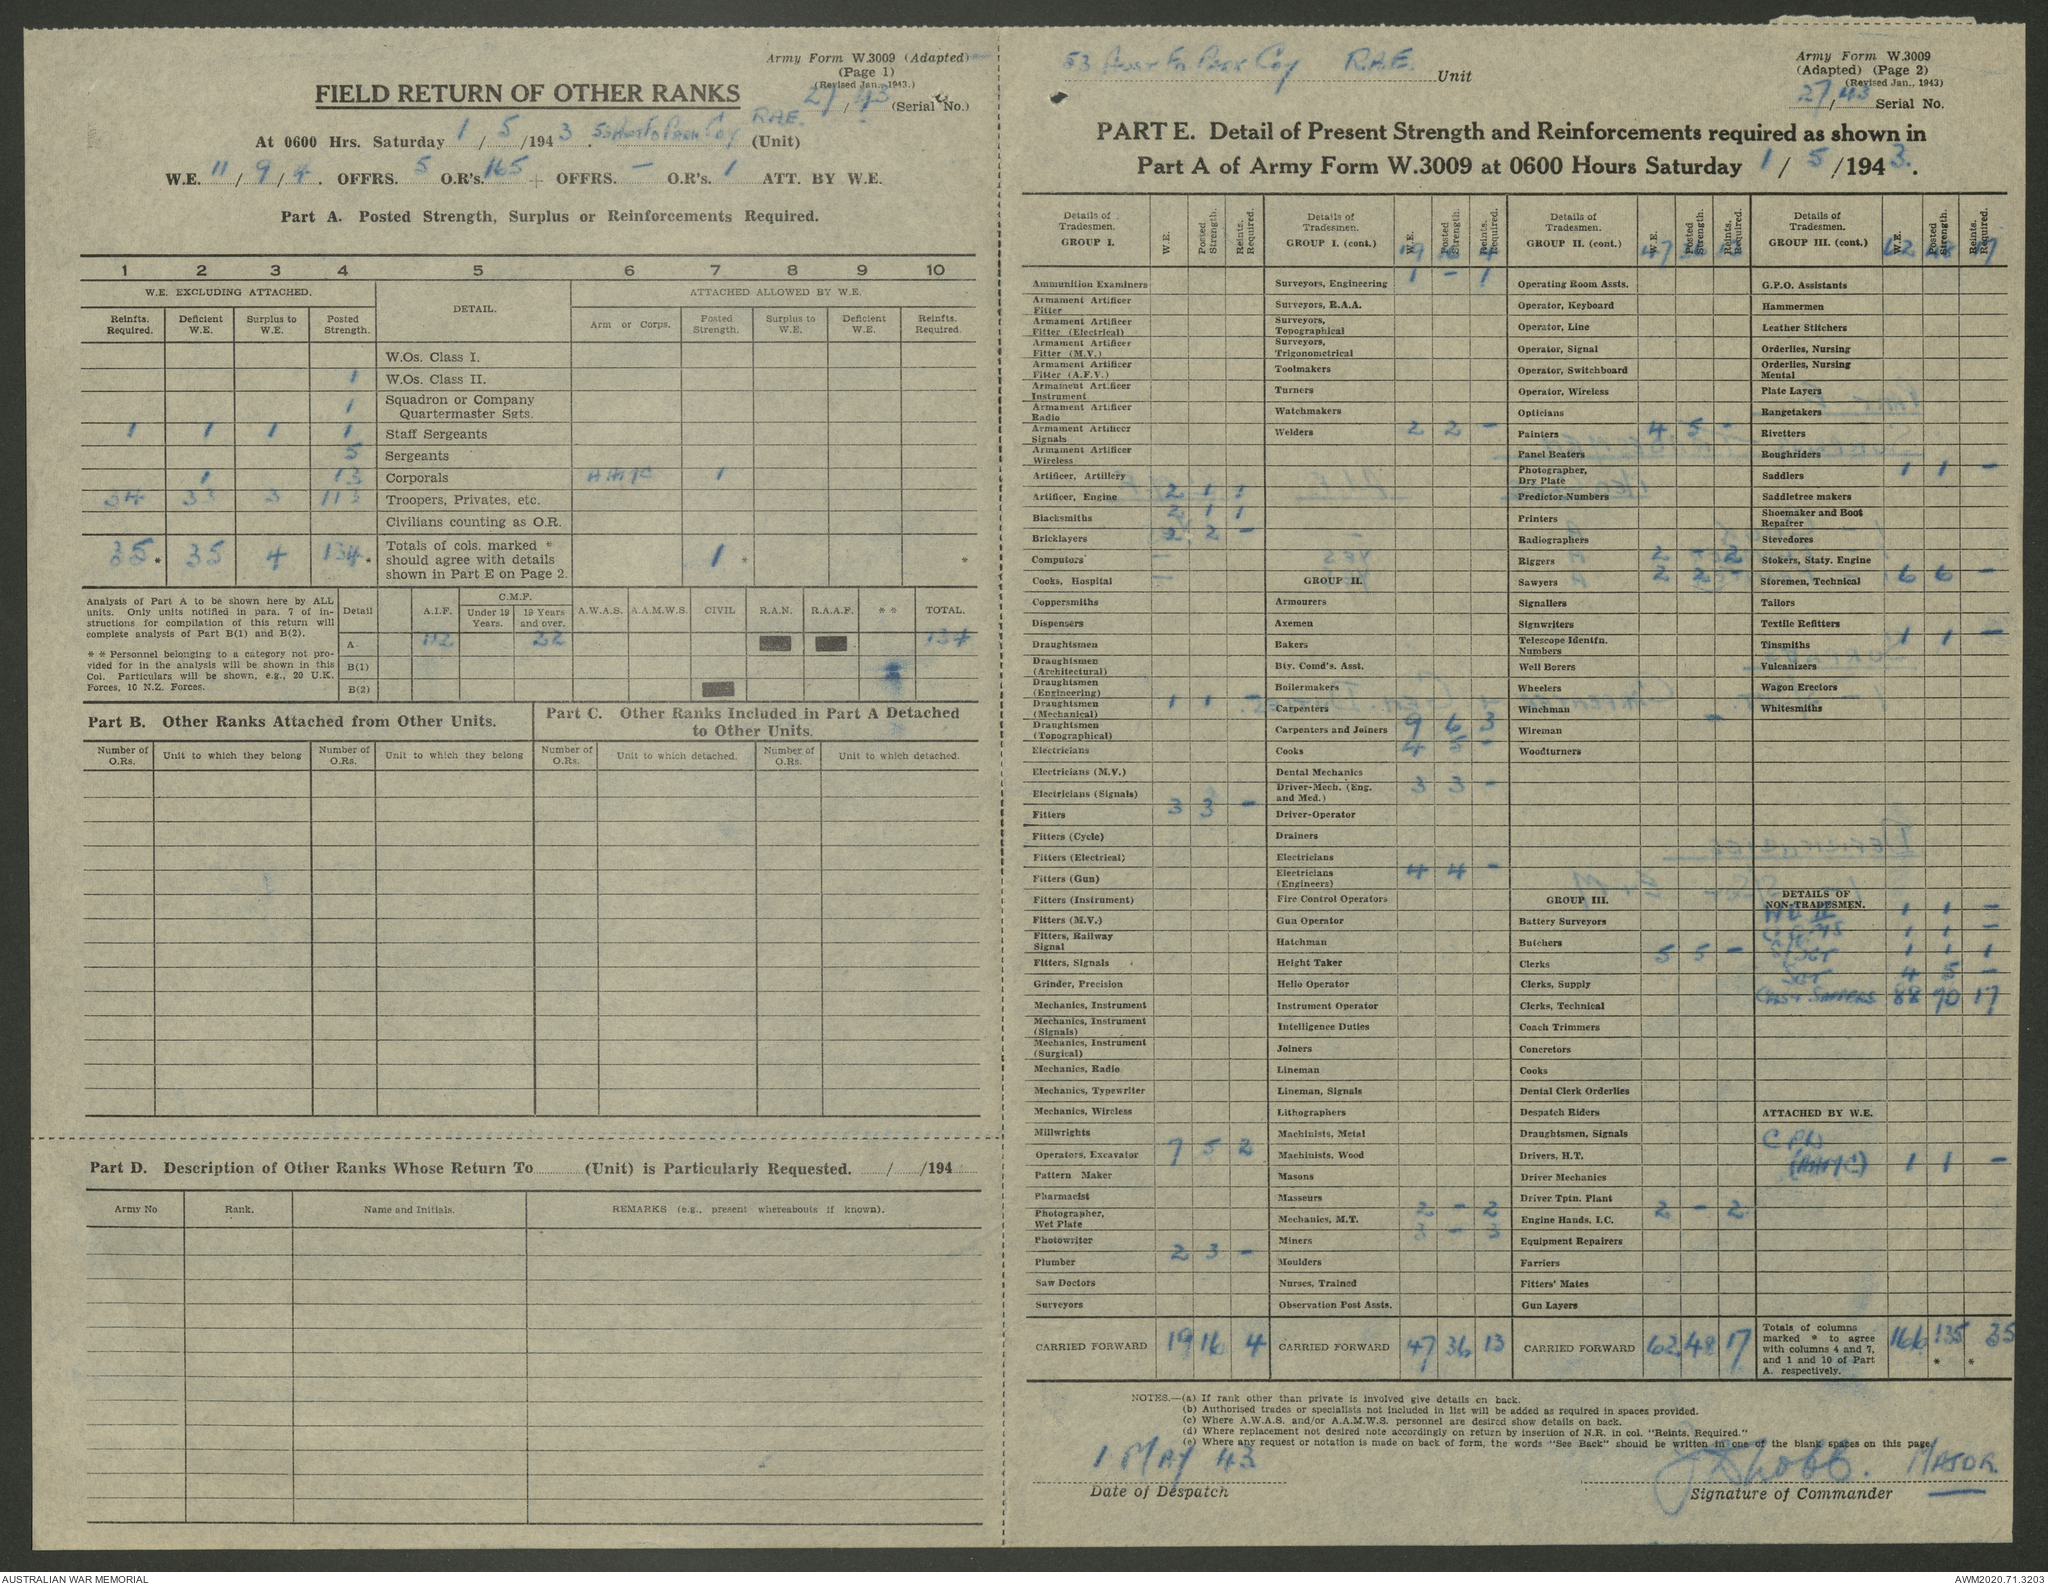 Army Form W.3009 (Adapted)
(Page 1)
(Revised Jan., 1943.)
FIELD RETURN OF OTHER RANKS
27/43 (Serial No.)
At 0600 Hrs. Saturday 1/5/1943. 53 Aust Fd Park Coy RAE. (Unit)
W.E. 11/9/4. OFFRS. 5 O.R's. 165 + OFFRS. — O.R's. 1 ATT. BY W.E.
Part A. Posted Strength, Surplus or Reinforcements Required.
1 2 3 4 5 6 7 8 9 10
W.E. EXCLUDING ATTACHED. DETAIL. ATTACHED ALLOWED BY W.E.
Reinfts. Required. Deficient W.E. Surplus to W.E. Posted Strength. Arm or Corps. Posted Strength. Surplus to W.E. Deficient W.E. Reinfts. Required.
W.Os. Class I.
1 W.Os. Class II.
1 Squadron or Company Quartermaster Sgts.
1 1 1 1 Staff Sergeants
5 Sergeants
1 13 Corporals AAMC 1
34 33 3 113 Troopers, Privates, etc.
Civilians counting as O.R.
35 * 35 4 134 * Totals of cols. marked * should agree with details shown in Part E on Page 2. 1 * *
Analysis of Part A to be shown here by ALL units. Only units notified in para. 7 of instructions for compilation of this return will complete analysis of Part B(1) and B(2).
* * Personnel belonging to a category not provided for in the analysis will be shown in this Col. Particulars will be shown, e.g., 20 U.K. Forces, 10 N.Z. Forces.
Detail A.I.F. C.M.F. Under 19 Years. 19 Years and over. A.W.A.S. A.A.M.W.S. CIVIL R.A.N. R.A.A.F. * * TOTAL.
A 112 22 134
B(1)
B(2)
Part B. Other Ranks Attached from Other Units.
Part C. Other Ranks Included in Part A Detached to Other Units.
Number of O.Rs. Unit to which they belong Number of O.Rs. Unit to which they belong Number of O.Rs. Unit to which detached. Number of O.Rs. Unit to which detached.
Part D. Description of Other Ranks Whose Return To (Unit) is Particularly Requested. / /194
Army No Rank. Name and Initials. REMARKS (e.g., present whereabouts if known).
53 Aust Fd Park Coy R.A.E. Unit
Army Form W.3009
(Adapted) (Page 2)
(Revised Jan., 1943)
27/43 Serial No.
PART E. Detail of Present Strength and Reinforcements required as shown in
Part A of Army Form W.3009 at 0600 Hours Saturday 1/5/1943.
Details of Tradesmen. GROUP I. W.E. Posted Strength. Reints. Required.
Ammunition Examiners
Armament Artificer Fitter
Armament Artificer Fitter (Electrical)
Armament Artificer Fitter (M.V.)
Armament Artificer Fitter (A.F.V.)
Armament Artificer Instrument
Armament Artificer Radio
Armament Artificer Signals
Armament Artificer Wireless
Artificer, Artillery
Artificer, Engine 2 1 1
Blacksmiths 2 1 1
Bricklayers 2 2 -
Computors
Cooks, Hospital
Coppersmiths
Dispensers
Draughtsmen
Draughtsmen (Architectural)
Draughtsmen (Engineering)
Draughtsmen (Mechanical) 1 1 -
Draughtsmen (Topographical)
Electricians
Electricians (M.V.)
Electricians (Signals)
Fitters 3 3 -
Fitters (Cycle)
Fitters (Electrical)
Fitters (Gun)
Fitters (Instrument)
Fitters (M.V.)
Fitters, Railway Signal
Fitters, Signals
Grinder, Precision
Mechanics, Instrument
Mechanics, Instrument (Signals)
Mechanics, Instrument (Surgical)
Mechanics, Radio
Mechanics, Typewriter
Mechanics, Wireless
Millwrights
Operators, Excavator 7 5 2
Pattern Maker
Pharmacist
Photographer, Wet Plate
Photowriter
Plumber 2 3 -
Saw Doctors
Surveyors
CARRIED FORWARD 19 16 4
Details of Tradesmen. GROUP I. (cont.) W.E. Posted Strength. Reints. Required.
19 16 4
Surveyors, Engineering 1 - 1
Surveyors, R.A.A.
Surveyors, Topographical
Surveyors, Trigonometrical
Toolmakers
Turners
Watchmakers
Welders 2 2 -
GROUP II.
Armourers
Axemen
Bakers
Bty. Comd's. Asst.
Boilermakers
Carpenters
Carpenters and Joiners 9 6 3
Cooks 4 5 -
Dental Mechanics
Driver-Mech. (Eng. and Med.) 3 3 -
Driver-Operator
Drainers
Electricians
Electricians (Engineers) 4 4 -
Fire Control Operators
Gun Operator
Hatchman
Height Taker
Helio Operator
Instrument Operator
Intelligence Duties
Joiners
Lineman
Lineman, Signals
Lithographers
Machinists, Metal
Machinists, Wood
Masons
Masseurs
Mechanics, M.T. 2 - 2
Miners 3 - 3
Moulders
Nurses, Trained
Observation Post Assts.
CARRIED FORWARD 47 36 13
Details of Tradesmen. GROUP II. (cont.) W.E. Posted Strength. Reints. Required.
47 36 13
Operating Room Assts.
Operator, Keyboard
Operator, Line
Operator, Signal
Operator, Switchboard
Operator, Wireless
Opticians
Painters 4 5 -
Panel Beaters
Photographer, Dry Plate
Predictor Numbers
Printers
Radiographers
Riggers 2 - 2
Sawyers 2 2 -
Signallers
Signwriters
Telescope Identfn. Numbers
Well Borers
Wheelers
Winchman
Wireman
Woodturners
GROUP III.
Battery Surveyors
Butchers
Clerks 5 5 -
Clerks, Supply
Clerks, Technical
Coach Trimmers
Concretors
Cooks
Dental Clerk Orderlies
Despatch Riders
Draughtsmen, Signals
Drivers, H.T.
Driver Mechanics
Driver Tptn. Plant
Engine Hands, I.C. 2 - 2
Equipment Repairers
Farriers
Fitters' Mates
Gun Layers
CARRIED FORWARD 62 48 17
Details of Tradesmen. GROUP III. (cont.) W.E. Posted Strength. Reints. Required.
62 48 17
G.P.O. Assistants
Hammermen
Leather Stitchers
Orderlies, Nursing
Orderlies, Nursing Mental
Plate Layers
Rangetakers
Rivetters
Roughriders
Saddlers 1 1 -
Saddletree makers
Shoemaker and Boot Repairer
Stevedores
Stokers, Staty. Engine
Storemen, Technical 6 6 -
Tailors
Textile Refitters
Tinsmiths 1 1 -
Vulcanizers
Wagon Erectors
Whitesmiths
DETAILS OF NON-TRADESMEN.
WO II 1 1 -
CQMS 1 1 -
S/Sgt 1 1 1
Sgt 4 5 -
Cpls & Sappers 88 70 17
ATTACHED BY W.E.
CPL
(AAMC) 1 1 -
Totals of columns marked * to agree with columns 4 and 7, and 1 and 10 of Part A. respectively. 166 135 * 35 *
NOTES.—(a) If rank other than private is involved give details on back.
(b) Authorised trades or specialists not included in list will be added as required in spaces provided.
(c) Where A.W.A.S. and/or A.A.M.W.S. personnel are desired show details on back.
(d) Where replacement not desired note accordingly on return by insertion of N.R. in col. "Reints. Required."
(e) Where any request or notation is made on back of form, the words "See Back" should be written in one of the blank spaces on this page
1 MAY 43 MAJOR.
Date of Despatch Signature of Commander
AUSTRALIAN WAR MEMORIAL AWM2020.71.3203